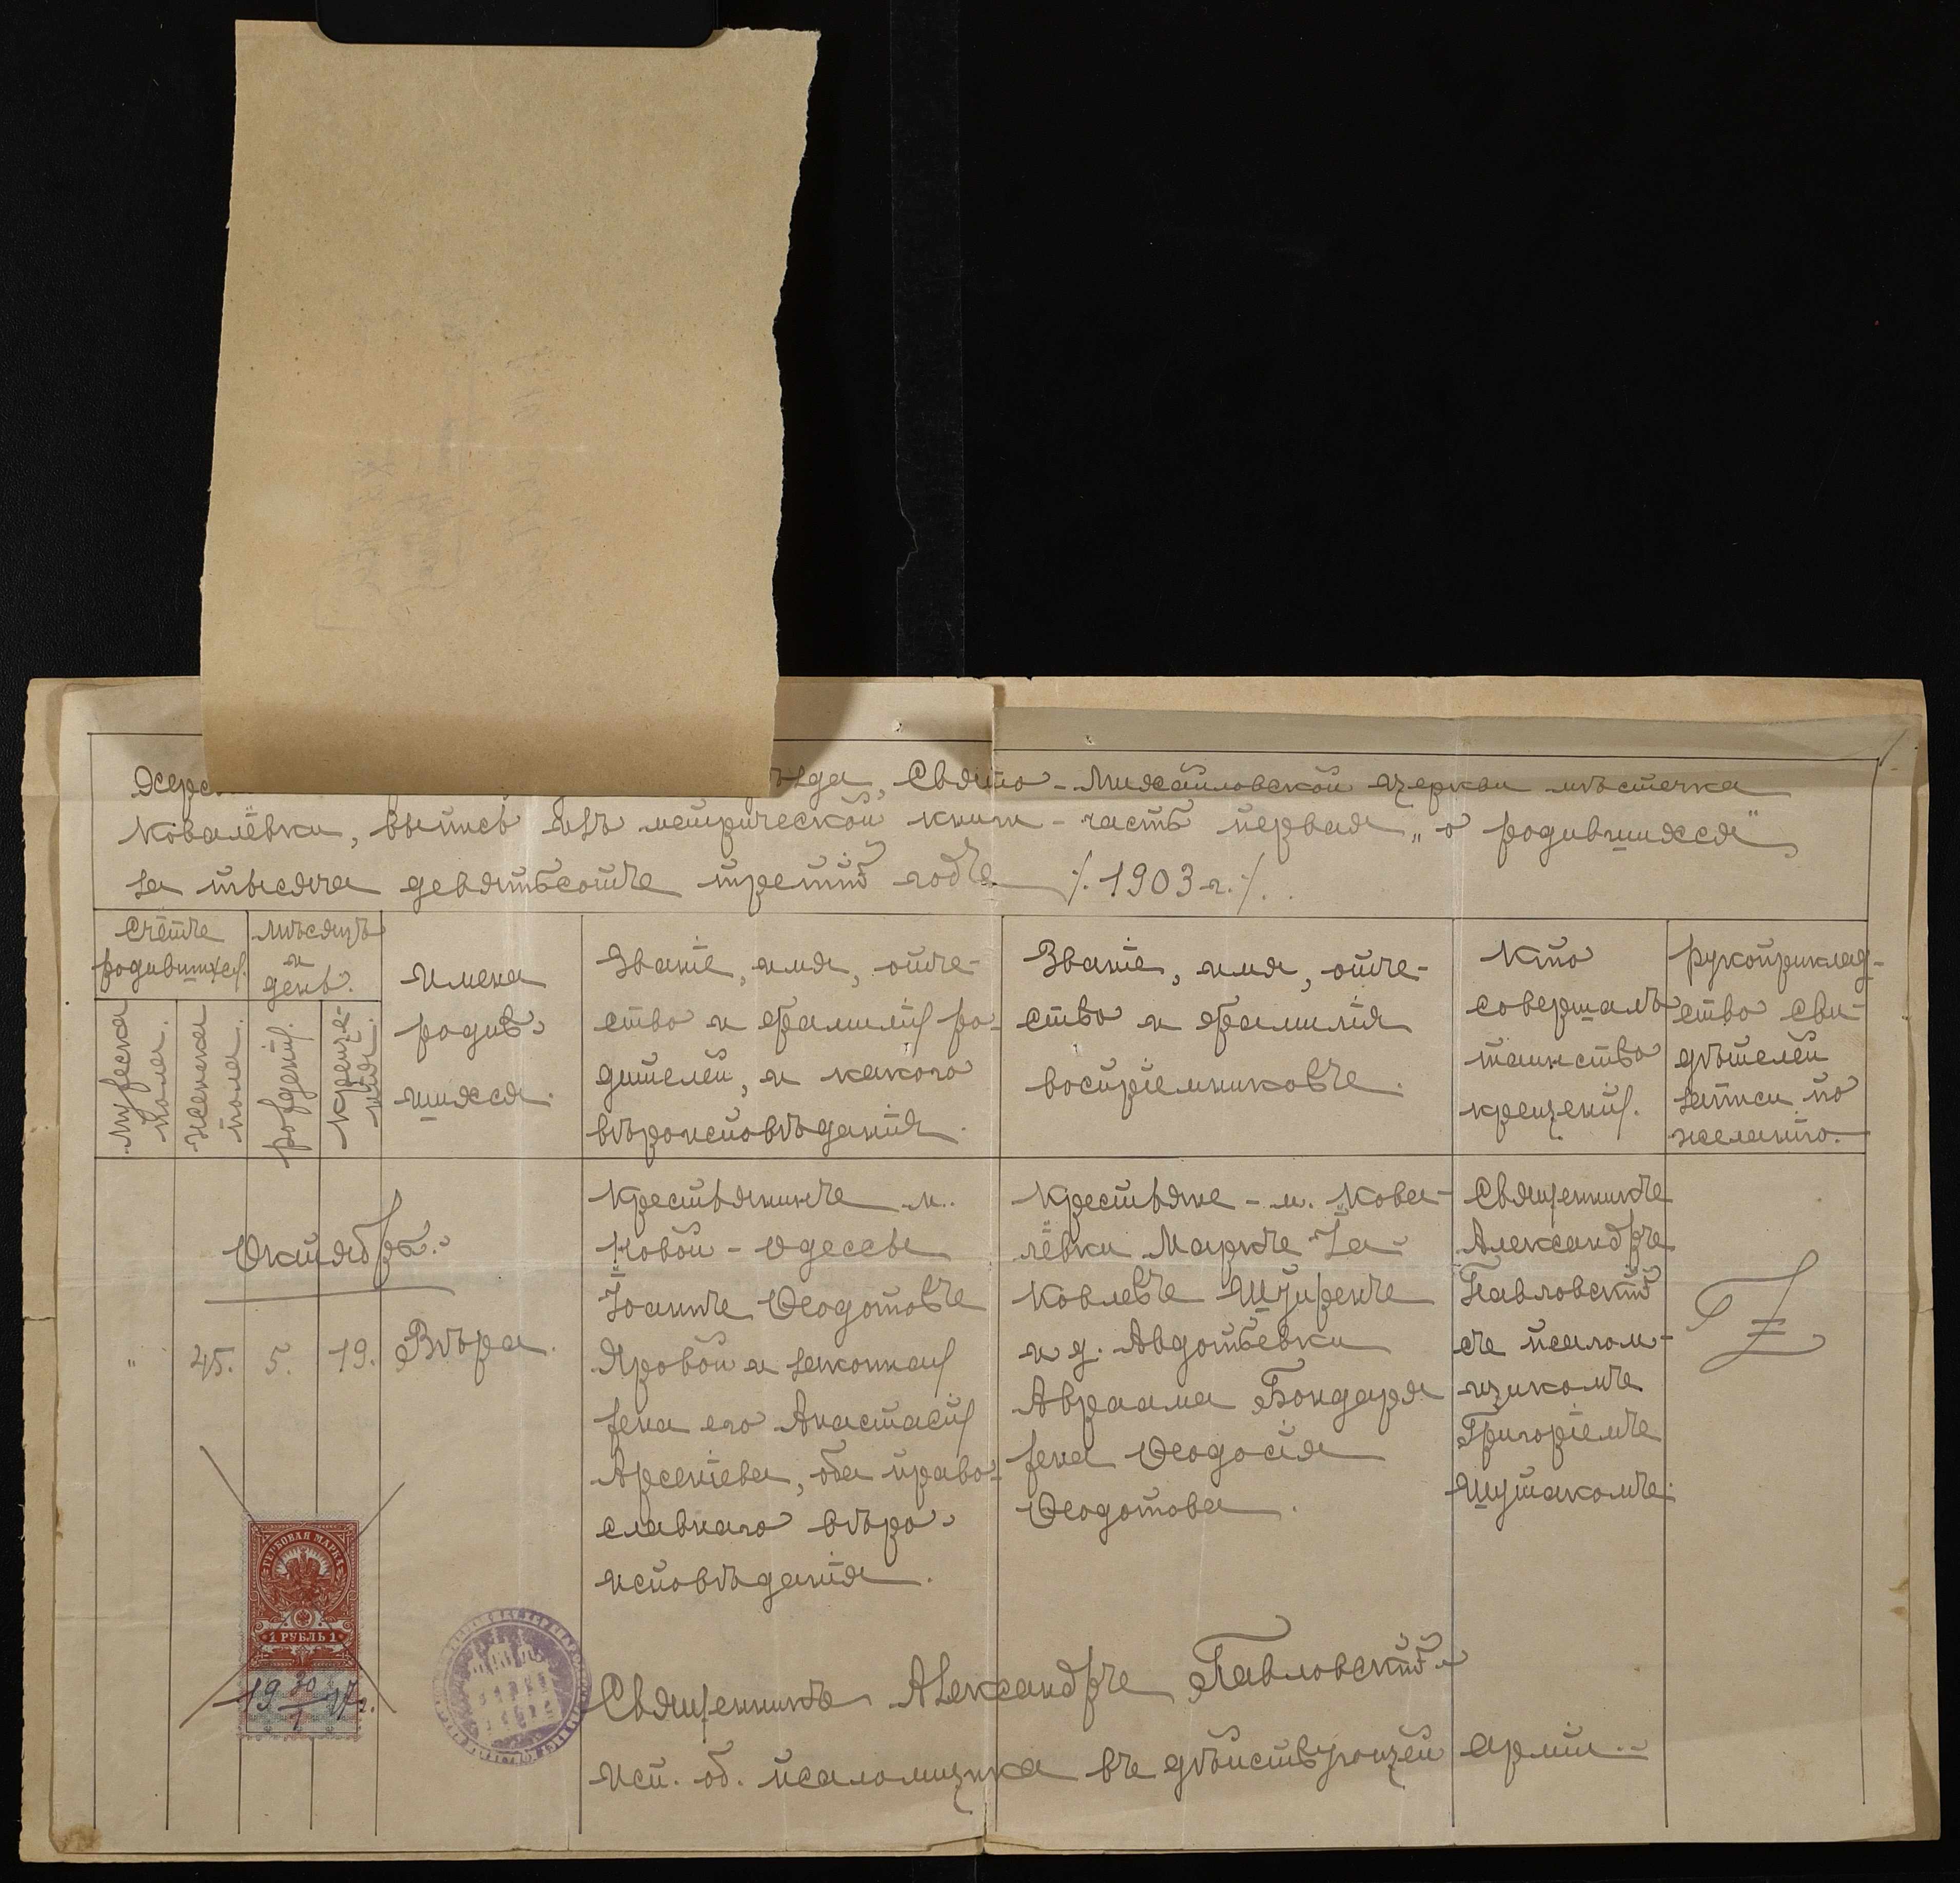 Херс ѣзда, Свято-Михайловской церкви мѣстечка
Ковалёвки, выпись изъ метрической книги - часть первая „о родившихся"
за тысяча девятьсотъ третій годъ /. 1903 г. /.
Счётъ
родившихся.
Мѣсяцъ
и
день.
Мужеска
пола.
Женска
пола.
рожденія.
Креще-
нія.
Имена
родив-
шихся.
Званіе, имя, отче-
ство и фамилія ро-
дителей, и какого
вѣроисповѣданія.
Званіе, имя, отче-
ство и фамилія
воспріемниковъ.
Кто
совершалъ
таинство
крещенія.
Рукоприклад-
ство сви-
дѣтелей
записи по
желанію.
Октябрь.
" 45. 5. 19. Вѣра.
Крестьянинъ м.
Новой-Одессы
Іоаннъ Ѳеодотовъ
Яровой и законная
жена его Анастасія
Арсеніева, оба право-
славнаго вѣро-
исповѣданія.
Крестьяне - м. Кова-
лёвки Маркъ Іа-
ковлевъ Шур
и д. Авдотьевки
Авраама Бондаря
жена Ѳеодосія
Ѳеодотова.
Священникъ
Александръ
Павловскій
съ псалом-
щикомъ
Григоріемъ
Шутакомъ.
ГЕРБОВАЯ МАРКА
1 РУБЛЬ 1
19 30/1 17 г.
Священникъ Александръ Павловскій
исп. об. псаломщика въ дѣйствующей арміи.